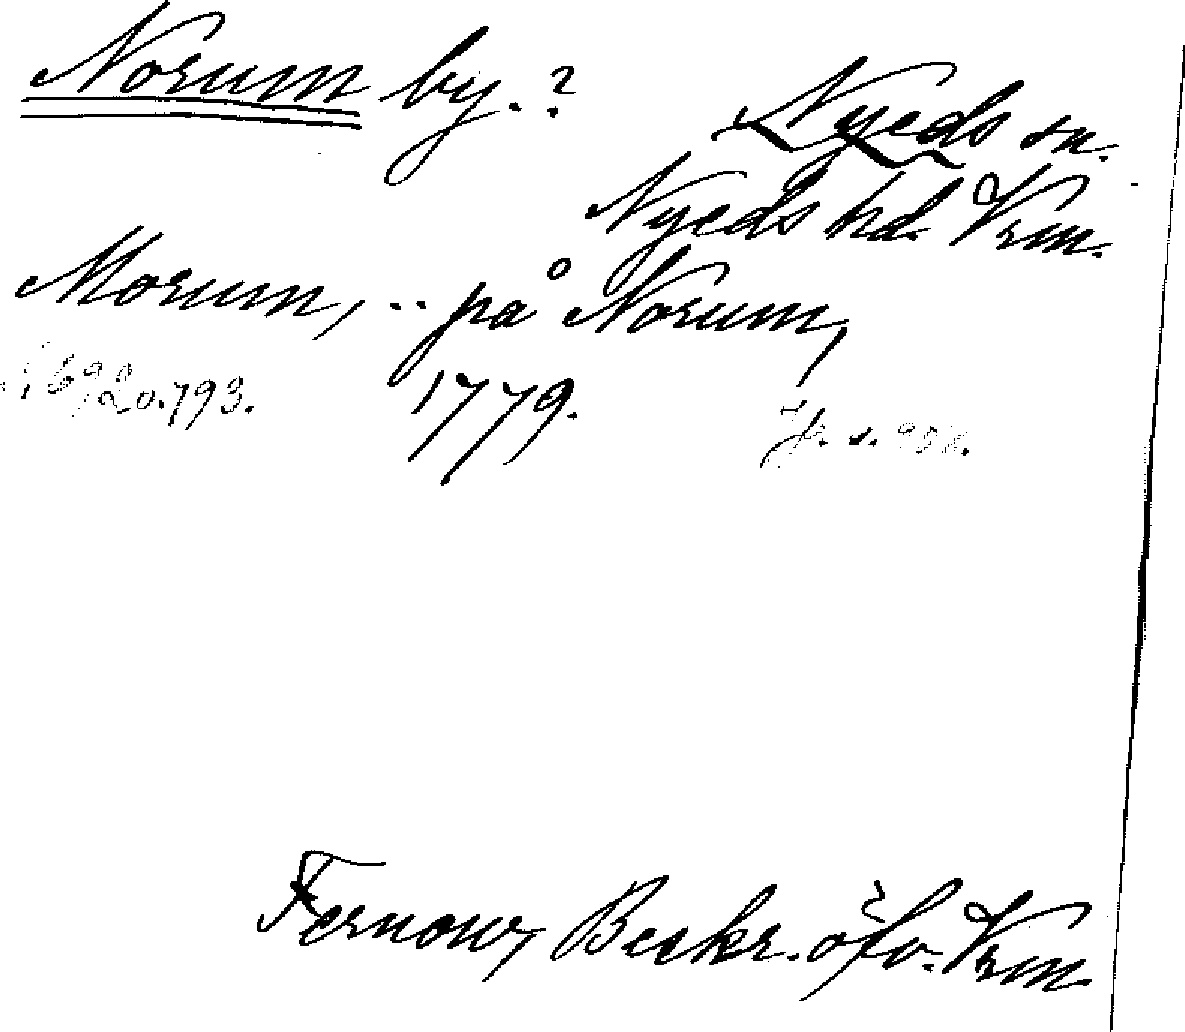 Norum by. ?
Nyeds sn.
Nyeds hd. Vrm.
Morum, .. på Norum,
1692 o. 793. 1779. Jfr s. 958.
Fernow, Beskr. öfv. Vrm.